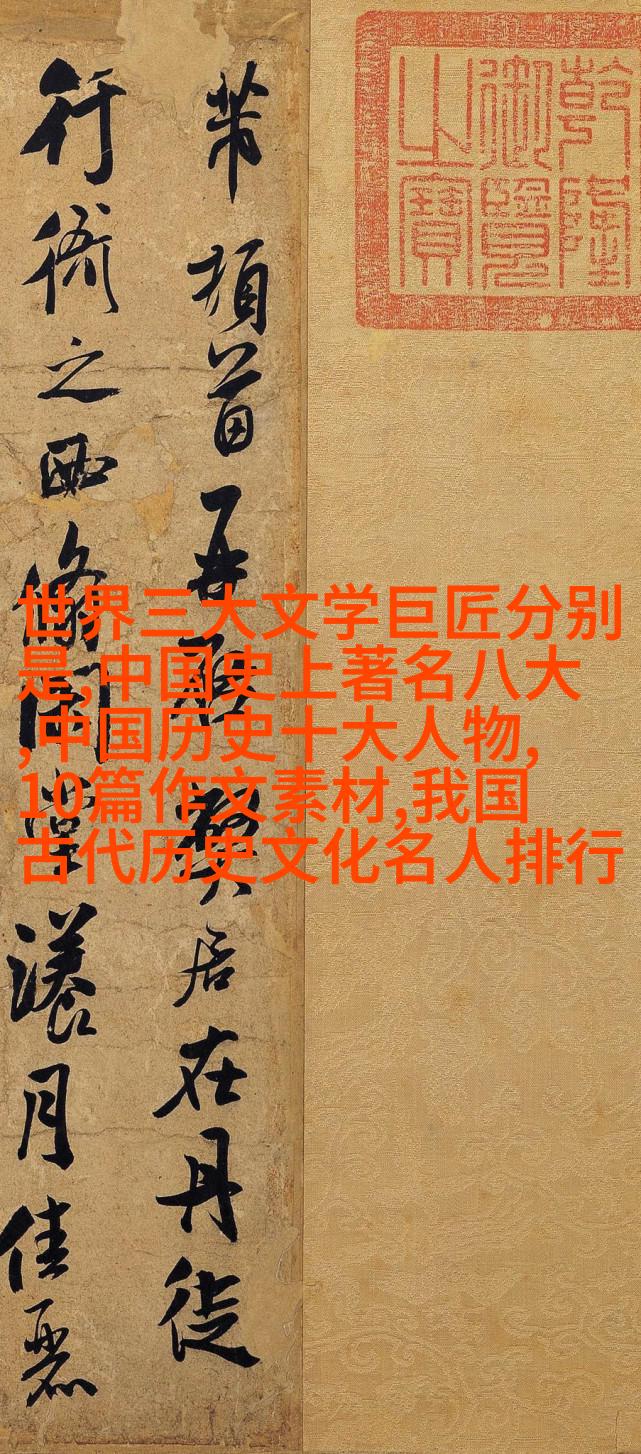 乾隆
御覽
之寶
芾頓首再啟弊居在丹徒
行衙之西翛閑堂漾月佳麗
世界三大文学巨匠分别
是,中国史上著名八大
,中国历史十大人物,
10篇作文素材,我国
古代历史文化名人排行